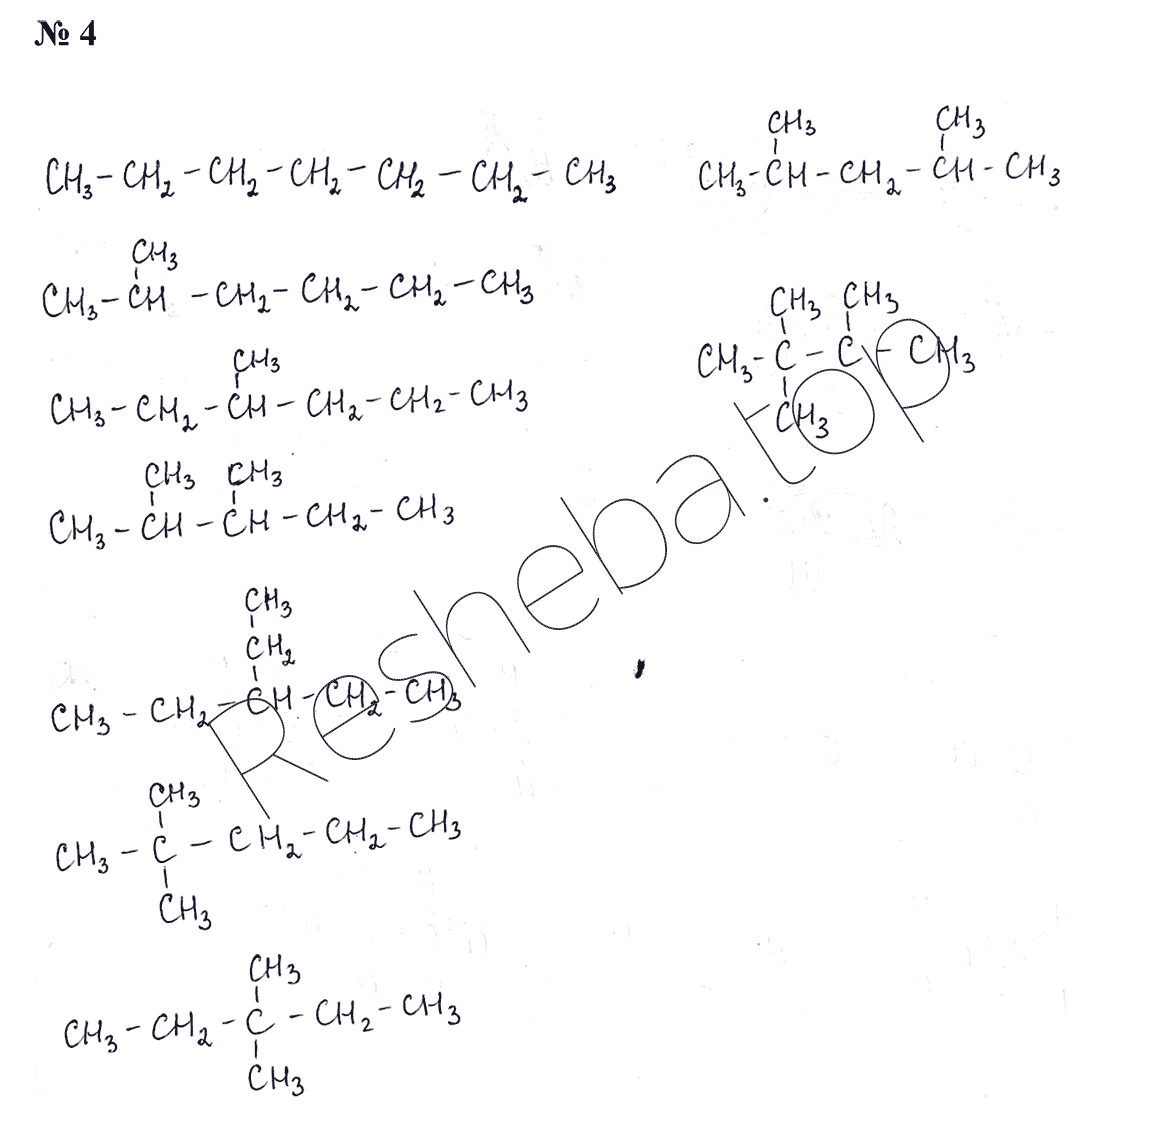 № 4
CH₃ CH₃
CH₃-CH₂-CH₂-CH₂-CH₂-CH₂-CH₃ CH₃-CH-CH₂-CH-CH₃
CH₃
CH₃-CH-CH₂-CH₂-CH₂-CH₃
CH₃ CH₃
CH₃-C-C-CH₃
CH₃
CH₃
CH₃-CH₂-CH-CH₂-CH₂-CH₃
CH₃ CH₃
CH₃-CH-CH-CH₂-CH₃
CH₃
CH₂
CH₃-CH₂-CH-CH₂-CH₃
CH₃
CH₃-C-CH₂-CH₂-CH₃
CH₃
CH₃
CH₃-CH₂-C-CH₂-CH₃
CH₃
Resheba.top